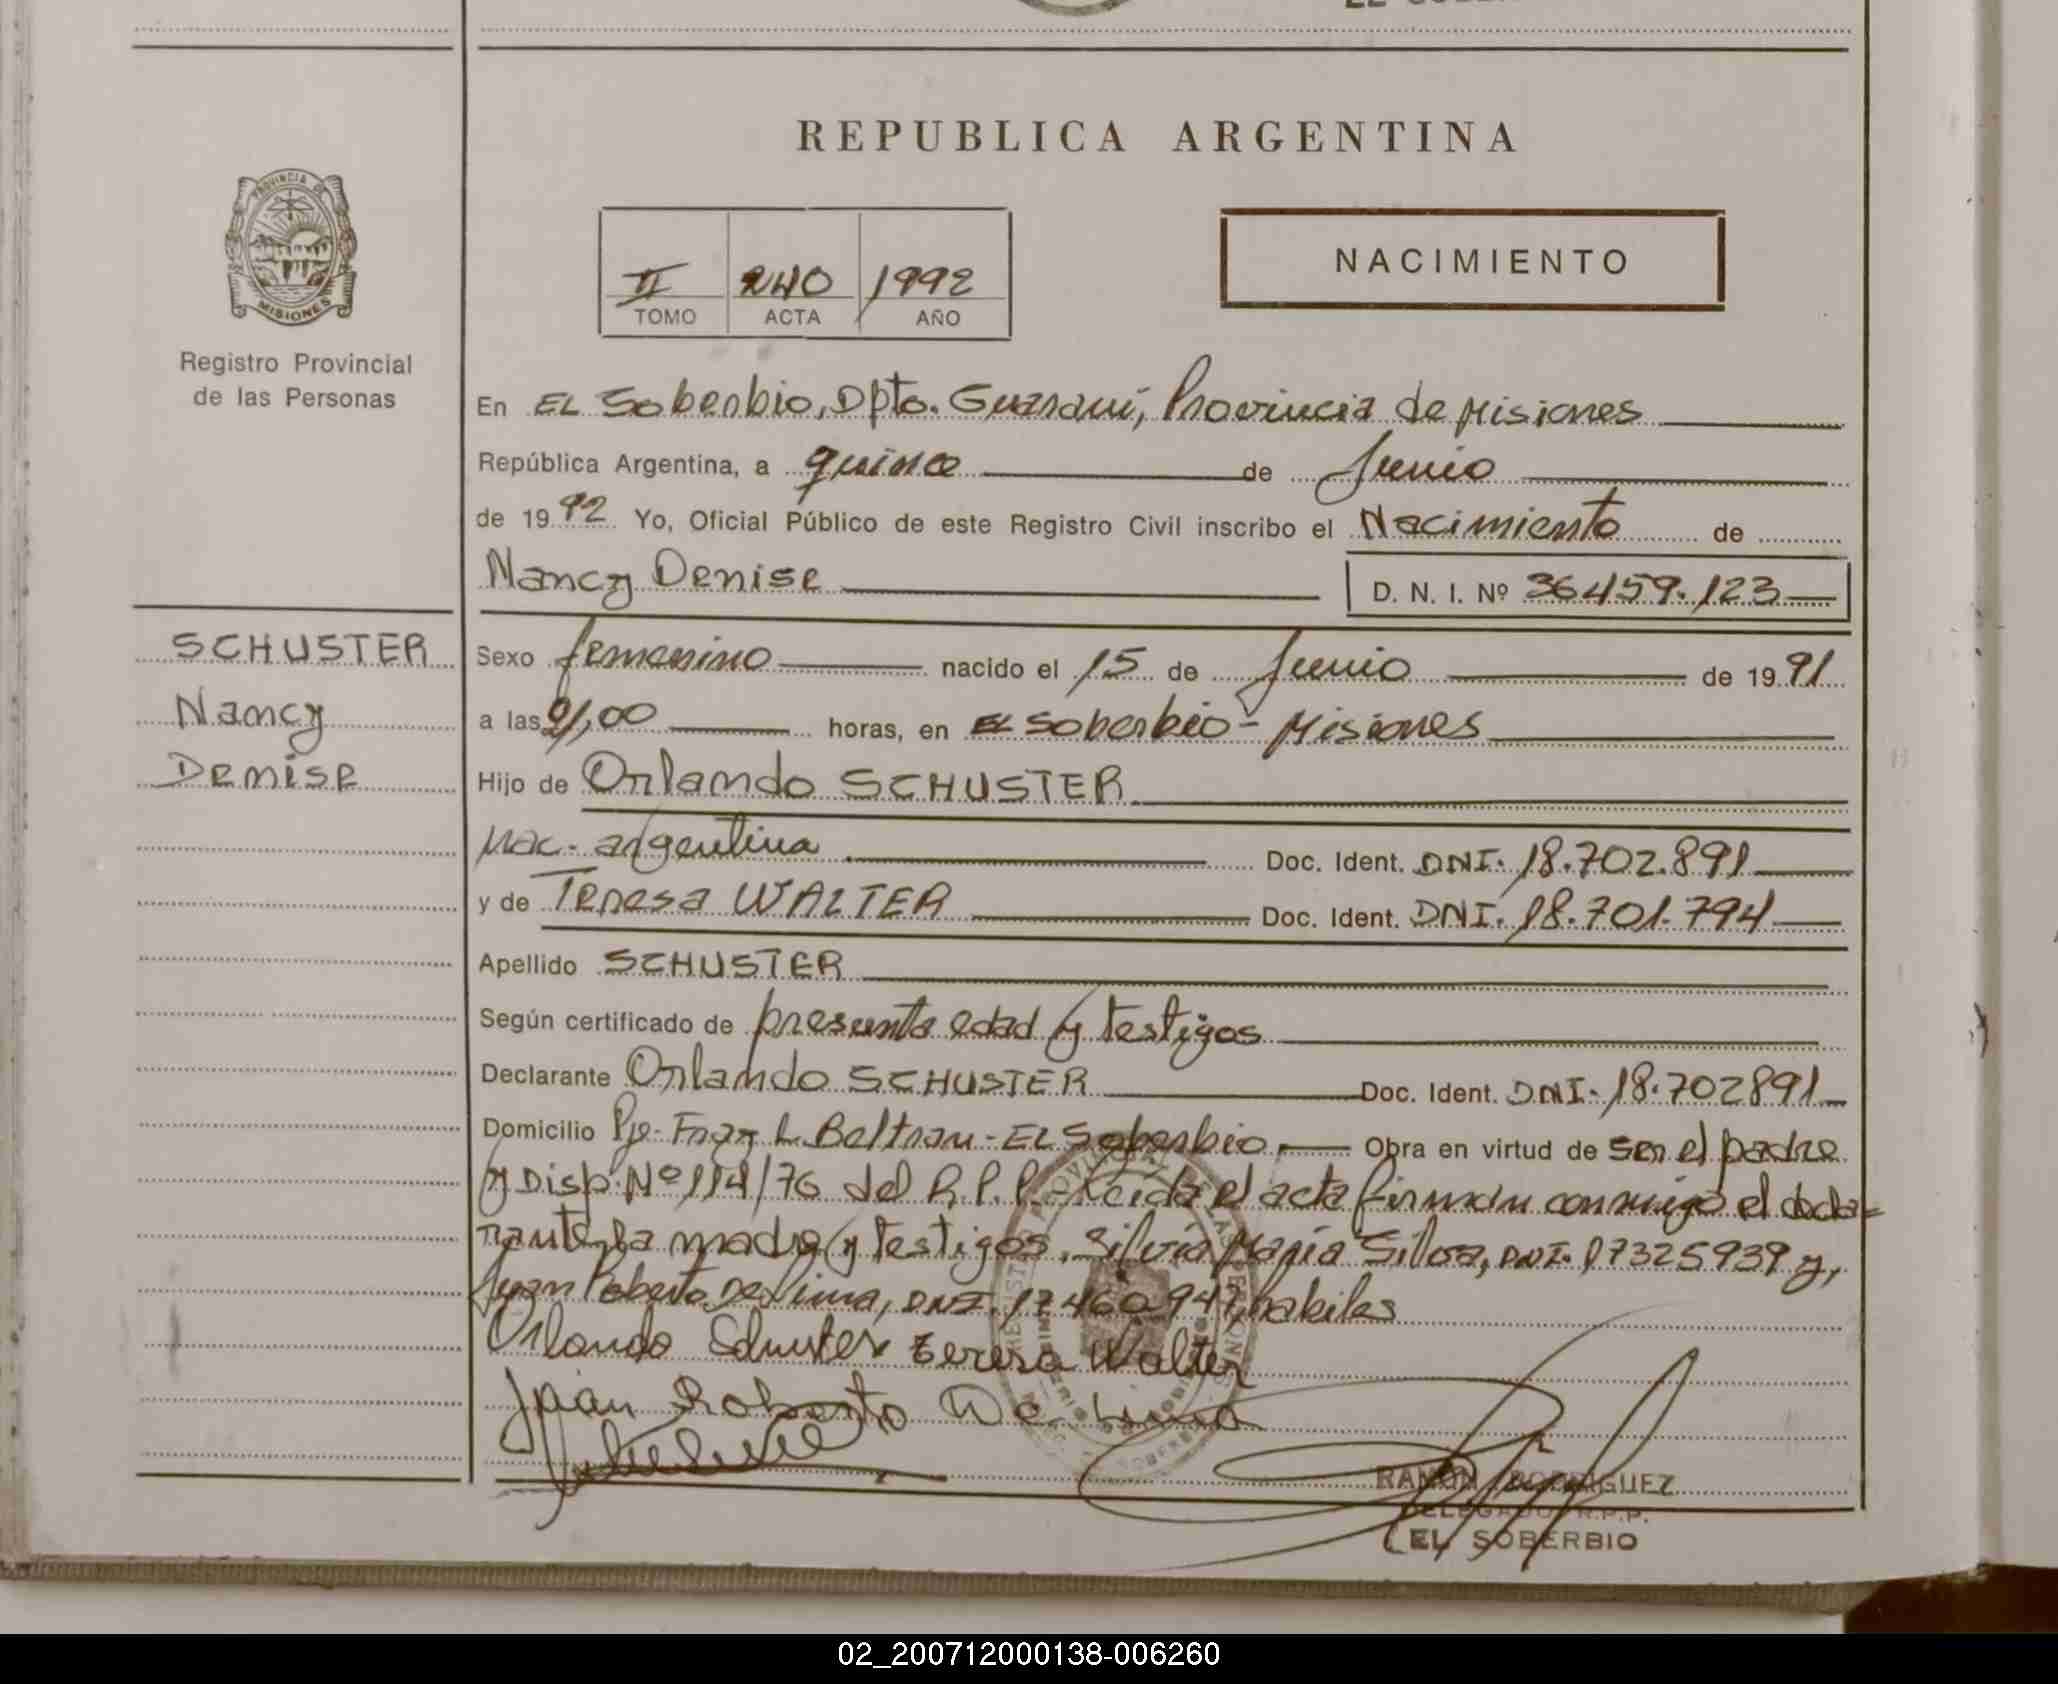 REPUBLICA ARGENTINA
PROVINCIA DE
MISIONES
Registro Provincial
de las Personas
II 240 1992
TOMO ACTA AÑO
NACIMIENTO
En EL Soberbio, Dpto. Guaraní, Provincia de Misiones
República Argentina, a quince de Junio
de 1992 Yo, Oficial Público de este Registro Civil inscribo el Nacimiento de
Nancy Denise D. N. I. Nº 36459.123
SCHUSTER
Nancy
Denise
Sexo femenino nacido el 15 de Junio de 1991
a las 21,00 horas, en EL Soberbio - Misiones
Hijo de Orlando SCHUSTER
Nac. argentina Doc. Ident. DNI. 18.702.891
y de Teresa WALTER Doc. Ident. DNI. 18.701.794
Apellido SCHUSTER
Según certificado de presunta edad y testigos
Declarante Orlando SCHUSTER Doc. Ident. DNI. 18.702891
Domicilio Pje. Fray L. Beltran - EL Soberbio Obra en virtud de ser el padre
y Disp. Nº 114/76 del R.P.P. - Leída el acta firman conmigo el decla=
rante, la madre y testigos, Silvia María Silva, DNI. 17325939 y,
Juan Roberto De Lima, DNI. 17460947, habiles
Orlando Schuster Teresa Walter
Juan Roberto De Lima
RAMON RODRIGUEZ
DELEGADO R.P.P.
EL SOBERBIO
02_200712000138-006260